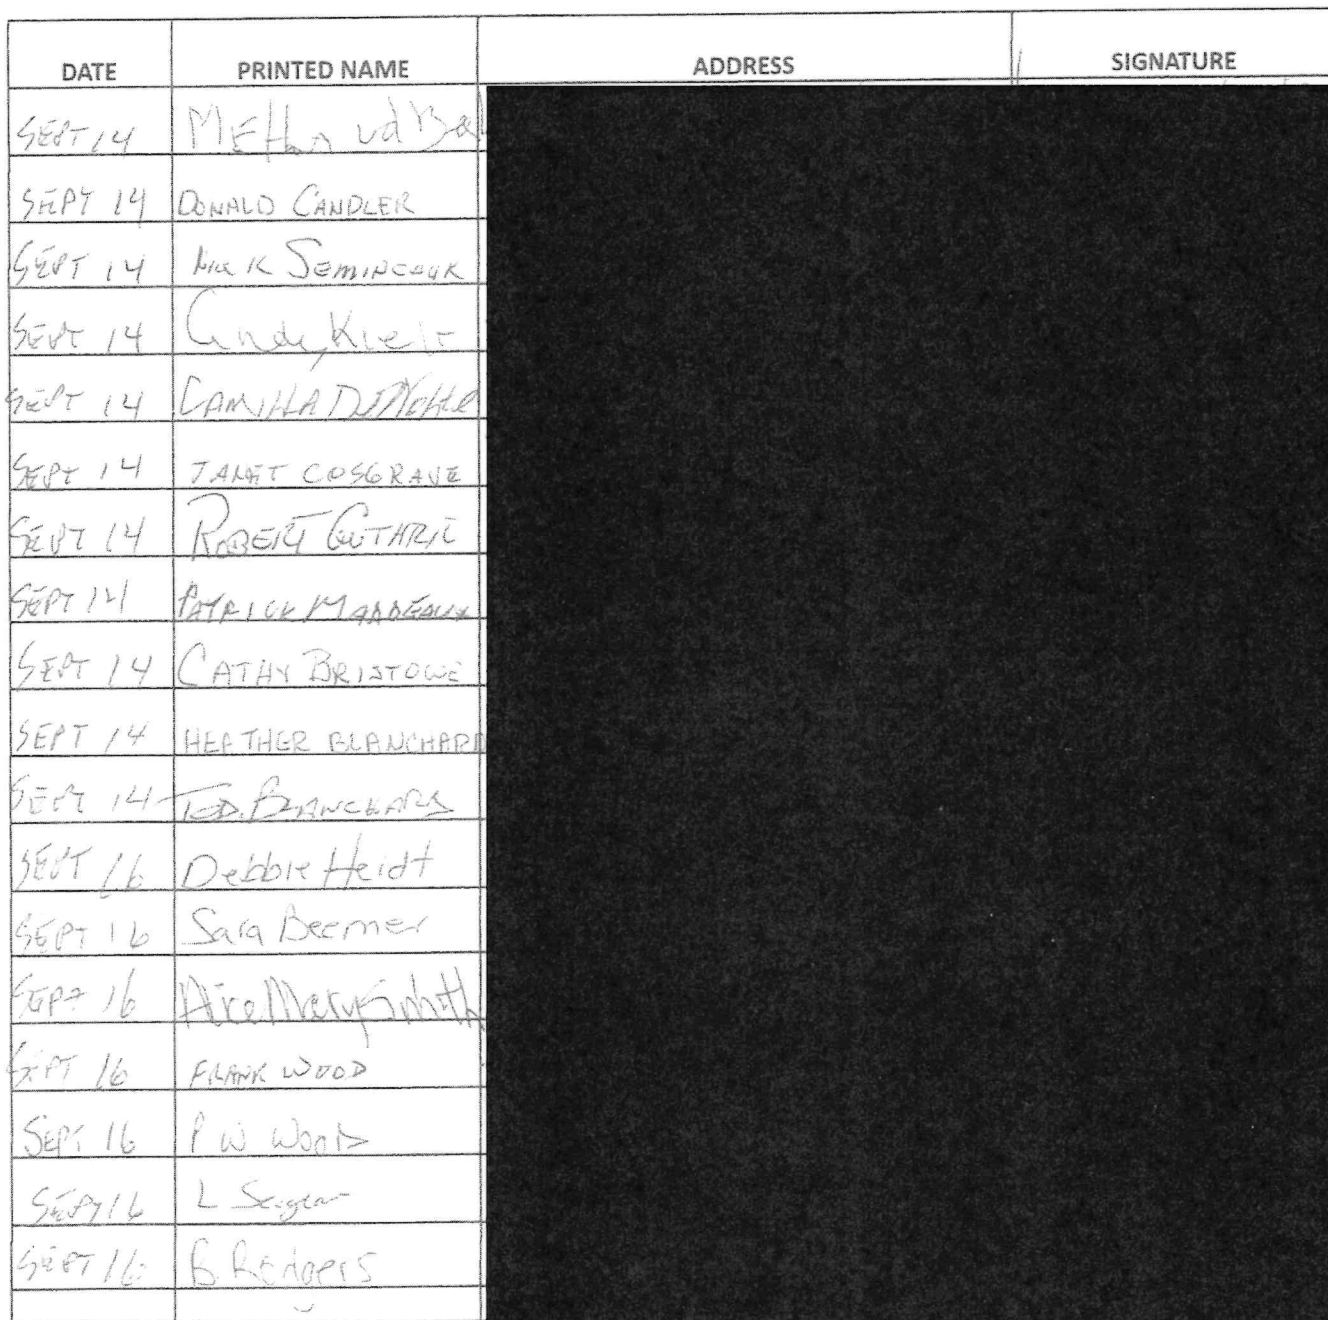 DATE PRINTED NAME ADDRESS SIGNATURE
SEPT 14
SEPT 14 DONALD CANDLER
SEPT 14
SEPT 14 Cindy
SEPT 14 CAMILLA
SEPT 14 JANET COSGRAVE
SEPT 14 ROBERT GUTHRIE
SEPT 14 PATRICK
SEPT 14 CATHY BRISTOWE
SEPT 14 HEATHER BLANCHARD
SEPT 14 TED BLANCHARD
SEPT 16 Debbie Heidt
SEPT 16 Sara Beemer
SEPT 16 Mary Smith
SEPT 16 FRANK WOOD
SEPT 16 P W WOOD
SEPT 16 L
SEPT 16 B. Rodgers